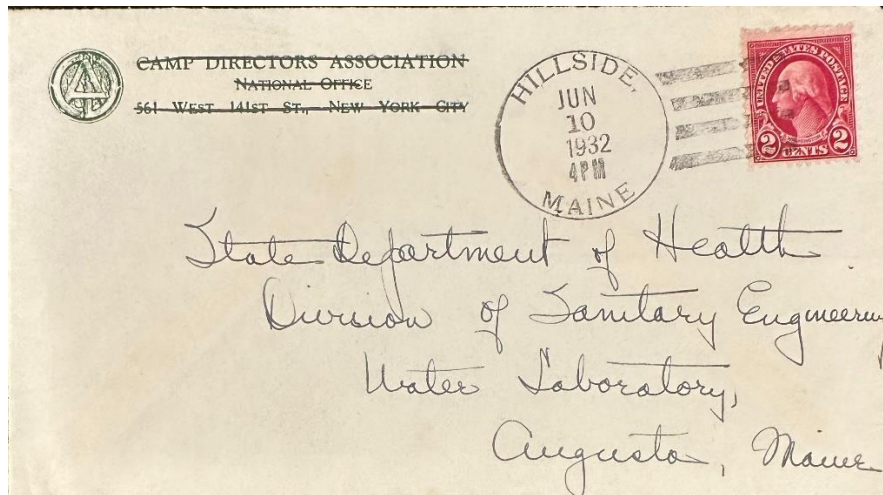 CAMP DIRECTORS ASSOCIATION
NATIONAL OFFICE
561 WEST 141ST ST., NEW YORK CITY
HILLSIDE,
JUN
10
1932
4PM
MAINE
UNITED STATES POSTAGE
2 CENTS 2
State Department of Health
Division of Sanitary Engineering
Water Laboratory,
Augusta, Maine